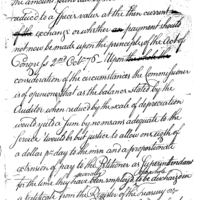 reduced to a fixed value at the then current
exchange or whether payment should
not now be made upon the principles of the Act of
Congress 2nd Octr 76. Upon
consideration of the circumstances the Commissioner
is of opinion that as the balance stated by the
Auditor when reduced by the scale of depreciation
would yield a sum by no means adequate to the
service would be but justice to allow one eighth of
a dollar pr day to the men and a proportional
extension of pay to the Petitioner as Superintendant
for the time they have been employed to be discharged in
a Certificate from the Register of the Treasury on